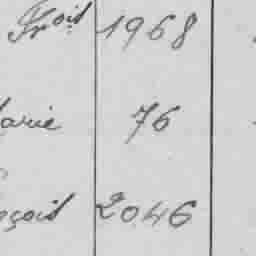 Frois 1968
arie 76
çois 2046